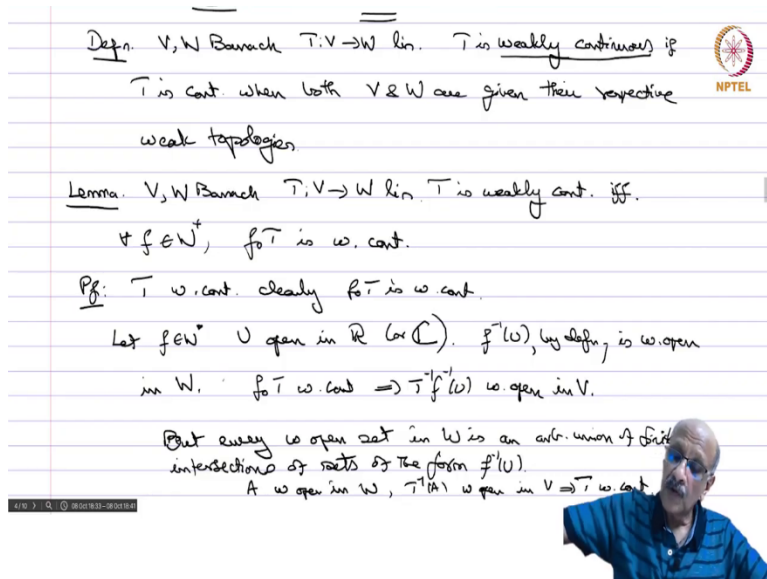 Defn. V, W Banach T: V → W lin. T is weakly continuous if
NPTEL
T is cont. when both V & W are given their respective
weak topologies
Lemma. V, W Banach T: V → W lin. T is weakly cont. iff.
∀ f ∈ W*, f∘T is w. cont.
Pf: T w. cont. clearly f∘T is w. cont.
Let f ∈ W* U open in ℝ (or ℂ). f⁻¹(U), by defn, is w. open
in W. f∘T w. cont ⟹ T⁻¹f⁻¹(U) w. open in V.
But every w open set in W is an arb. union of
intersections of sets of the form f⁻¹(U).
A w open in W, T⁻¹(A) w open in V ⟹ T w. cont
4/10 08 Oct 18:33 – 08 Oct 18:41